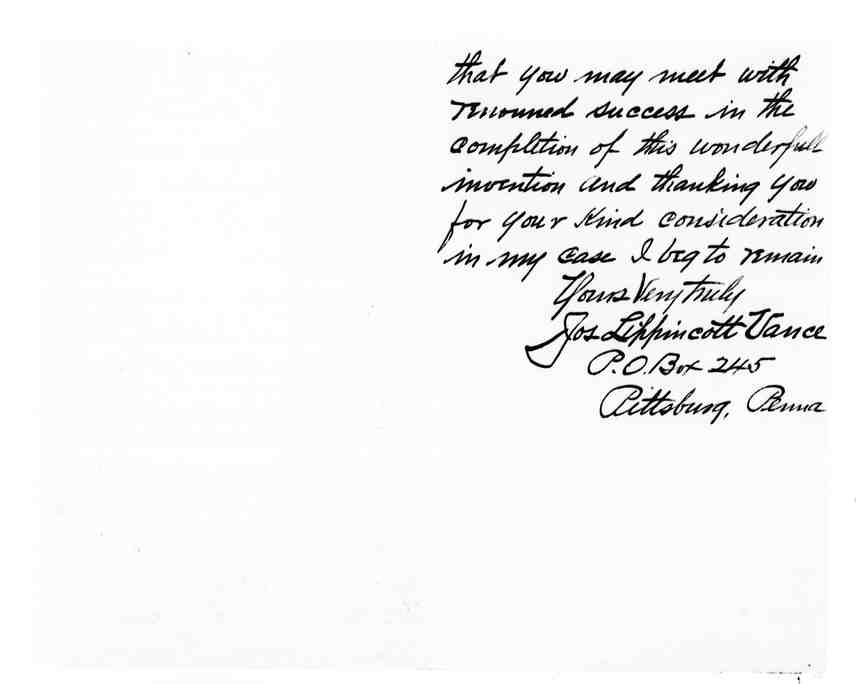 that you may meet with
renowned success in the
completion of this wonderfull
invention and thanking you
for your Kind consideration
in my case I beg to remain
Yours Very truly
Jos Lippincott Vance
P.O. Box 245
Pittsburg, Penna